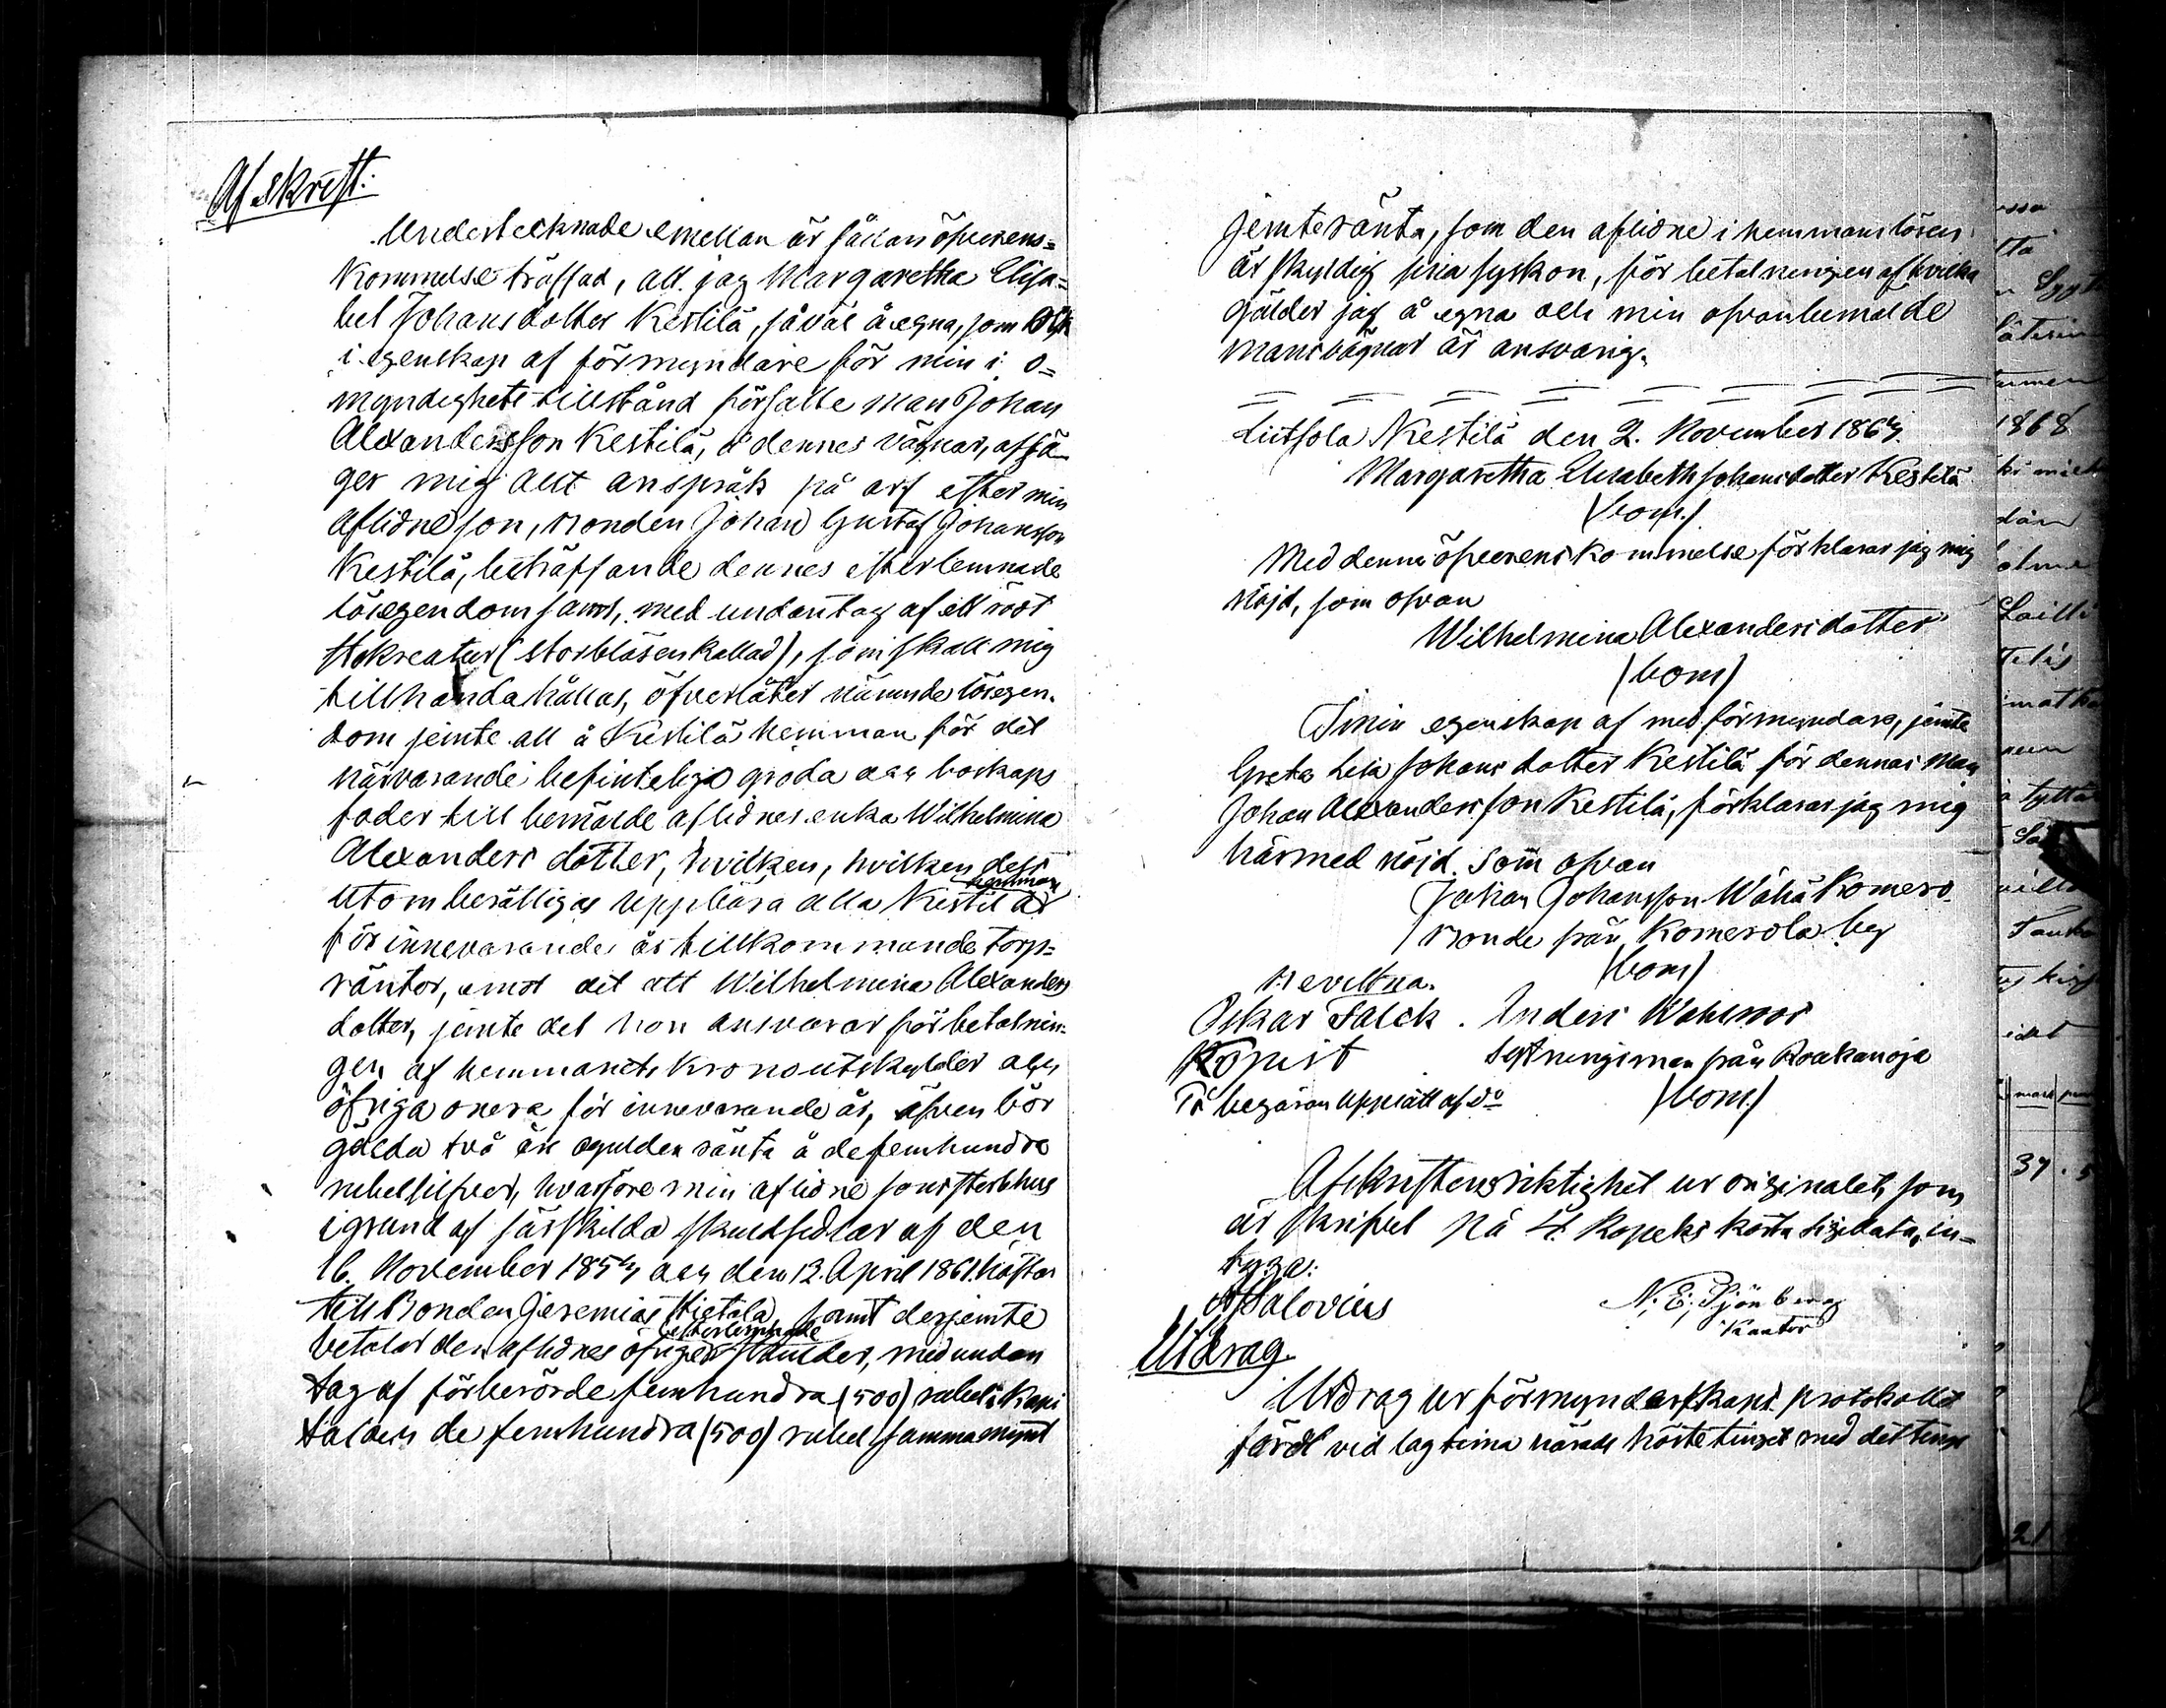 Afskrift:
Undertecknade emellan är sådan öfverens=
kommelse träffad, att jag Margaretha Elisa=
bet Johansdotter Kestilä, såväl å egna, som
i egenskap af förmyndare för min i o=
myndighets tillstånd försatte man Johan
Alexandersson Kestilä, å dennes vägnar, afsä
ger mig allt anspråk på arf efter min
aflidne son, bonden Johan Gustaf Johansson
Kestilä, beträffande dennes efterlemnade
lösegendom samt, med undantag af ett rödt
stokreatur (storbläsen kallad), som skall mig
tillhandahållas, öfverlåter nämnde lösegen-
dom jemte all å Kestilä hemman för det
närvarande befinteliga gröda och boskaps
foder till bemälde aflidnes enka Wilhelmina
Alexanders dotter, hvilken, hvilken dess
hemman
utom berättigas uppbära alla Kestilä
för innevarande år tillkommande torp=
räntor, emot det att Wilhelmina Alexanders
dotter, jemte det hon ansvarar för betalnin=
gen af hemmanets kronoutskylder och
öfriga onera för innevarande år, äfven bör
gälda två års ogulden ränta å de femhundra
rubel silfver, hvarföre min aflidne sons sterbhus
i grund af särskilda skuldsedlar af den
16. November 1859 och den 12. April 1861 häftar
till Bonden Jeremias Hietala, samt derjemte
efterlemnade
betalar den aflidnes öfriga skulder, med undan
tag af förberörde femhundra (500) rubels kapi
talen de femhundra (500) rubel samma mynt
jemte ränta, som den aflidne i hemmanslösen
är skyldig sina syskon, för betalningen af hvilka
gälder jag å egna och min ofvanbemälde
mans vägnar är ansvarig.
Liitsola Kestilä den 2. November 1867.
Margaretha Elisabeth Johansdotter Kestilä
(bom.)
Med denna öfverenskommelse förklarar jag mig
nöjd, som ofvan
Wilhelmina Alexandersdotter
(bom)
I min egenskap af medförmyndare, jemte
Greta Lisa Johans dotter Kestilä för dennas man
Johan Alexandersson Kestilä, förklarar jag mig
härmed nöjd. Som ofvan
Johan Johansson Wähä Komero
bonde från Komerola by
(bom)
Bevittna.
Oskar Falck. Anders Wahlroos
Kopist Sytningsman från Raakanoja
På begäran uppsatt af do (bom.)
Afskriftens riktighet ur originalet, som
är skrifvet på 4 kopeks karta sigillata, in-
tyga:
A Salovius N. E. Sjönberg
Kantor
Utdrag.
Utdrag ur förmynderskaps protokollet
fördt vid lagtima härads hösteting med